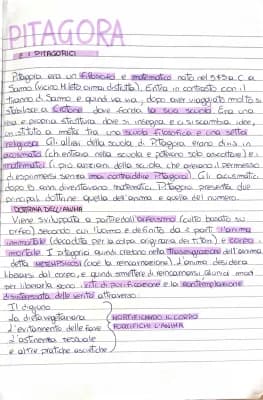 PITAGORA
E I PITAGORICI
Pitagora era un filosofo e matematico nato nel 575 a.C. a
Samo (vicino Mileto ormai distrutta). Entra in contrasto con il
tiranno di Samo e quindi va via, dopo aver viaggiato molto si
stabilisce a Crotone dove fonda la sua scuola. Era una
vera e propria struttura dove si insegna e ci si scambia idee,
un istituto a metà tra una scuola filosofica e una setta
religiosa. Gli allievi della scuola di Pitagora erano divisi in
acusmatici (che entravano nella scuola e potevano solo ascoltare) e i
matematici (i più anziani della scuola che avevano il permesso
di esprimersi senza mai contraddire Pitagora). Gli acusmatici,
dopo anni diventavano matematici. Pitagora presenta due
principali dottrine: quella dell'anima e quella del numero.
DOTTRINA DELL'ANIMA
Viene sviluppata a partire dall'orfeismo (culto basato su
Orfeo) secondo cui l'uomo è definito da 2 parti: l'anima
immortale (decaduta per la colpa originaria dei Titani) e corpo
mortale. I pitagorici quindi credono nella trasmigrazione dell'anima
detta METEMPSICOSI (cioè la reincarnazione). L'anima desidera
liberarsi dal corpo, e quindi smettere di reincarnarsi. Quindi i modi
per liberarla sono i riti di purificazione e la contemplazione
disinteressata delle verità attraverso:
Il digiuno
La dieta vegetariana
L'evitamento delle fave
L'astinenza sessuale
e altre pratiche ascetiche
MORTIFICANDO IL CORPO
FORTIFICHI L'ANIMA